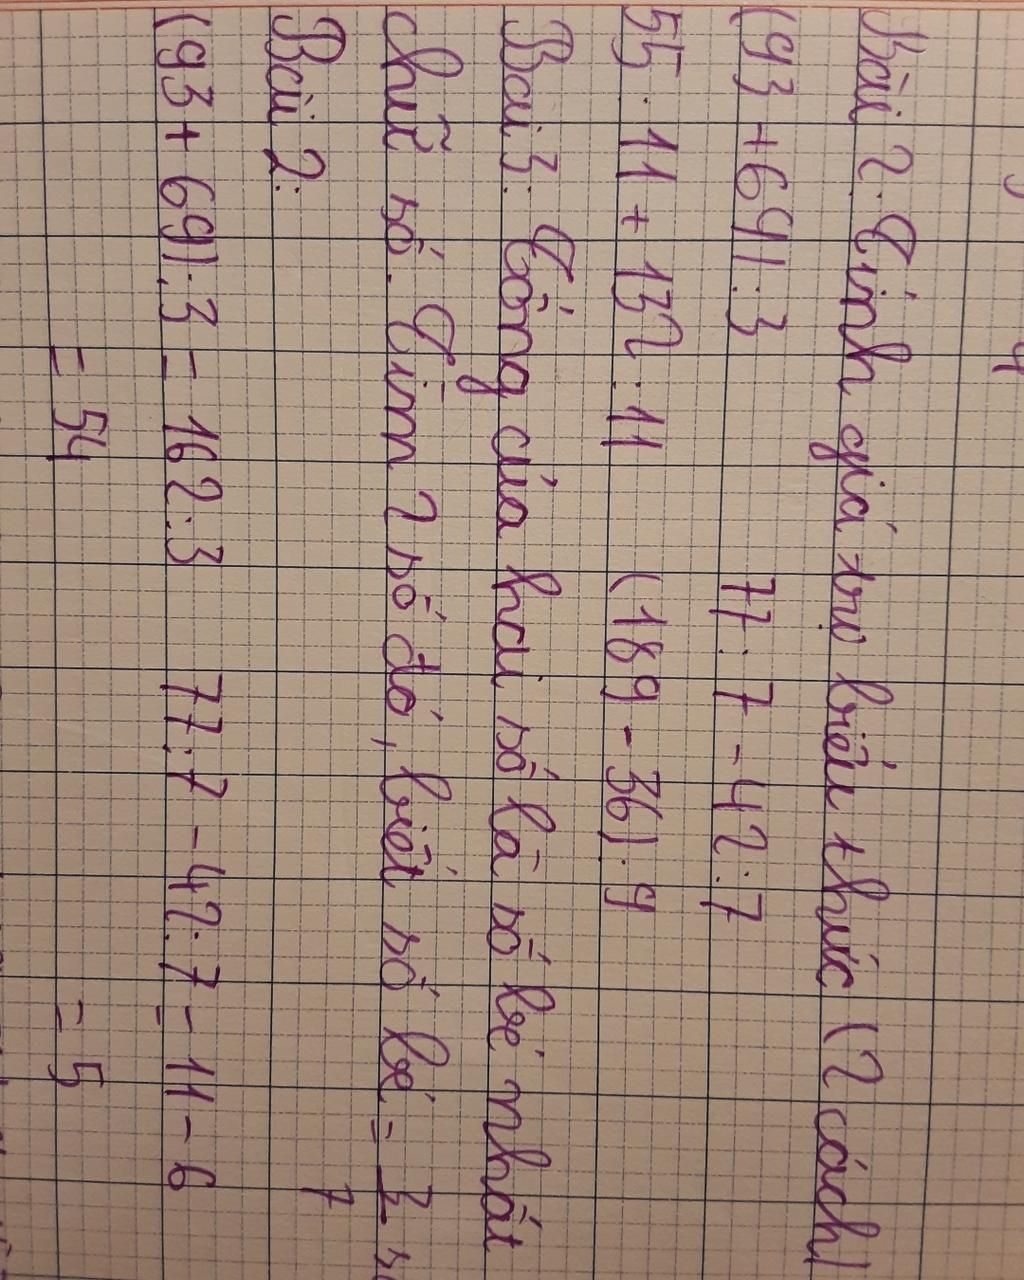 Bài 2: Tính giá trị biểu thức (2 cách)
(93 + 69) : 3 77 : 7 - 42 : 7
55 : 11 + 132 : 11 (189 - 36) : 9
Bài 3: Tổng của hai số là số bé nhất
chữ số. Tìm 2 số đó, biết số bé =
7
Bài 2:
(93 + 69) : 3 = 162 : 3 77 : 7 - 42 : 7 = 11 - 6
= 54 = 5